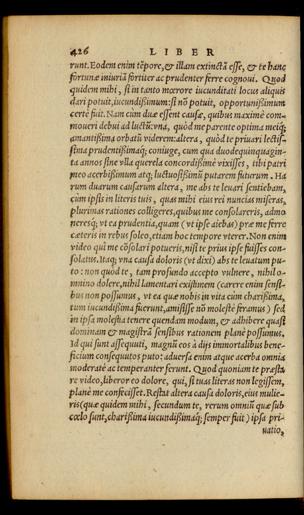 426 LIBER
runt. Eodem enim tēpore, & illam extinctā esse, & te hanc
fortunæ iniuriā fortiter ac prudenter ferre cognoui. Quod
quidem mihi, si in tanto mœrore iucunditati locus aliquis
dari potuit, iucundißimum: si nō potuit, opportunißimum
certè fuit. Nam cùm duæ essent causæ, quibus maximè com-
moueri debui ad luctū: vna, quòd me parente optima meiq́;
amantißima orbatū viderem: altera, quòd te priuari lectis-
sima prudentißimaq́; coniuge, cum qua duodequinquagin-
ta annos sine vlla querela concordißimè vixisses, tibi patri
meo acerbißimum atq; luctuosißimū putarem futurum. Ha
rum duarum causarum altera, me abs te leuari sentiebam,
cùm ipsis in literis tuis, quas mihi eius rei nuncias miseras,
plurimas rationes colligeres, quibus me consolareris, admo
neresq́; vt ea prudentia, quam (vt ipse aiebas) præ me ferre
cæteris in rebus soleo, etiam hoc tempore vterer. Non enim
video qui me cōsolari potueris, nisi te prius ipse fuisses con-
solatus. Itaq; vna causa doloris (vt dixi) abs te leuatum pu-
to: non quòd te, tam profundo accepto vulnere, nihil o-
mnino dolere, nihil lamentari existimem (carere enim sensi-
bus non possumus, vt ea quæ nobis in vita cùm charißima,
tum iucundißima fuerunt, amisisse nō molestè feramus) sed
in ipsa molestia tenere quendam modum, & adhibere quasi
dominam & magistrā sensibus rationem planè possumus.
Id qui sunt assequuti, magnū eos à dijs immortalibus bene-
ficium consequutos puto: aduersa enim atque acerba omnia
moderatè ac temperanter ferunt. Quod quoniam te præsta
re video, liberor eo dolore, qui, si tuas literas non legissem,
planè me confecisset. Restat altera causa doloris, eius mulie-
ris (quæ quidem mihi, secundum te, rerum omniū quæ sub
cœlo sunt, charißima iucundißimaq́; semper fuit) ipsa pri-
uatio,